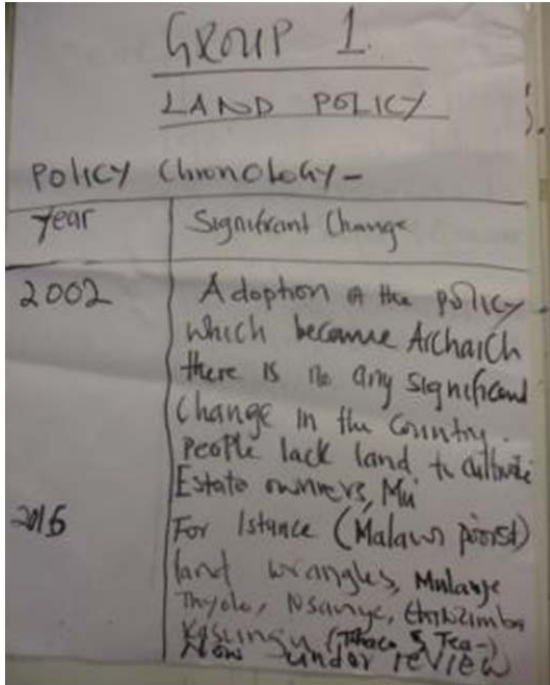 GROUP 1
LAND POLICY
POLICY Chronology -
Year Significant Change
2002 Adoption of the policy
which became Archaich
there is no any significant
Change in the Country.
People lack land to cultivate
Estate owners, Mu
2016 For Istance (Malawi
land wrangles, Mulanje
Thyolo, Nsanje,
Kasungu (Tobacco & Tea-)
Now under review